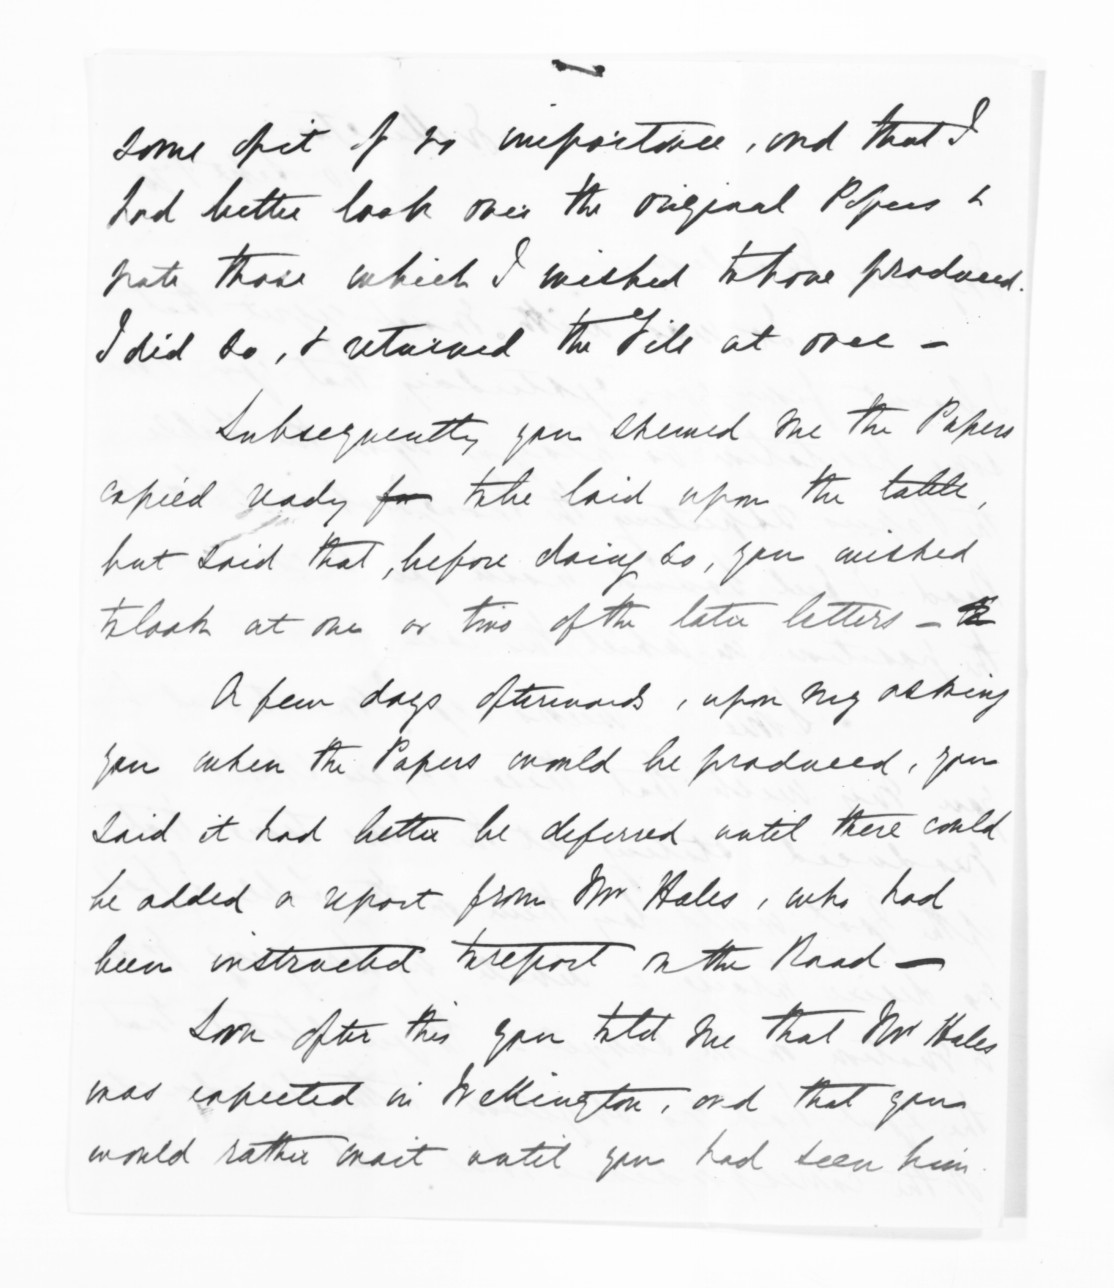 some of it of no importance, and that I
had better look over the original Papers &
note those which I wished to have produced.
I did so, & returned the File at once –
Subsequently you shewed me the Papers
copied ready for to be laid upon the table,
but said that, before doing so, you wished
to look at one or two of the later letters –
A few days afterwards, upon my asking
you when the Papers would be produced, you
said it had better be deferred until there could
be added a report from Mr Hales, who had
been instructed to report on the Road –
Soon after this you told me that Mr Hales
was expected in Wellington, and that you
would rather wait until you had seen him.